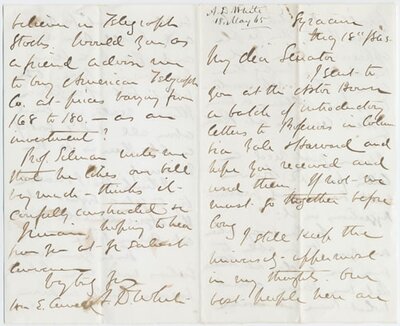 A. D. White
18 May 65
Syracuse
May 18th 1865
My dear Senator
I sent to
you at the Astor House
a batch of introductory
letters to Professors in Colum
bia Yale & Harvard and
hope you received and
used them. If not - we
must go together before
long
I still keep the
University - uppermost
in my thoughts. Our
best people here are
believer in Telegraph
Stock. Would you as
a friend advise me
to buy American Telegraph
Co. at prices varying from
168 to 180. - as an
investment?
Prof. Silliman writes me
that he likes our bill
very much - thinks it
carefully constructed &c
hoping to hear
from you at yr earliest
A D White